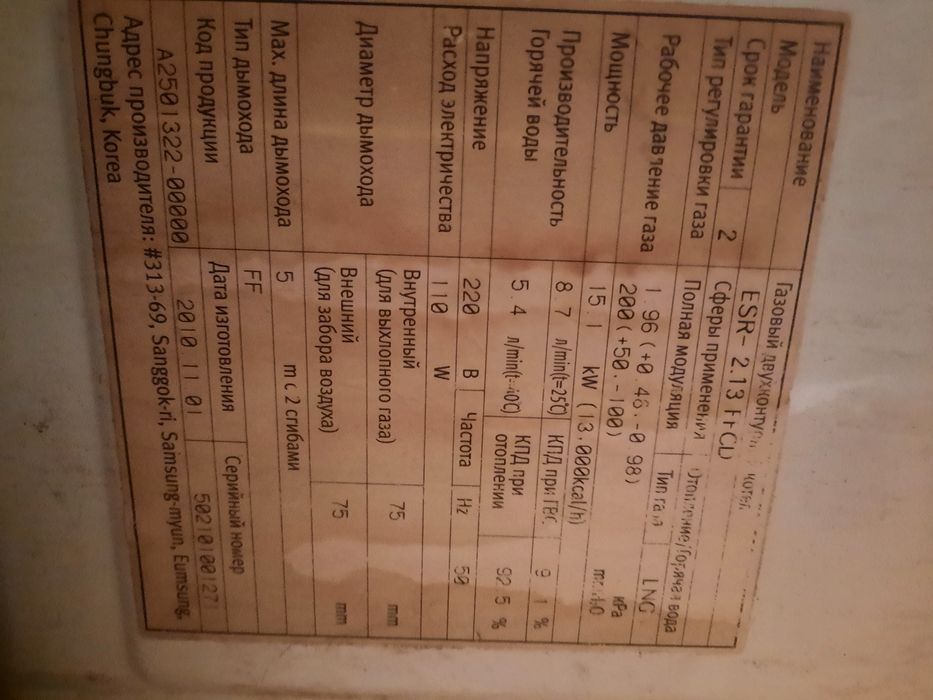 Наименование Газовый двухконтурн котел
Модель ESR- 2.13 FF(L)
Срок гарантии 2 Сферы применения Отопление/Горячая вода
Тип регулировки газа Полная модуляция Тип газа LNG
Рабочее давление газа 1.96 (+0.46.-0 98) кPa
200(+50.-100)
Мощность 15.1 kW (13.000kcal/h)
Производительность 8.7 л/min(t=25℃) КПД при ГВС 9 1 %
Горячей воды 5.4 л/min(t=40℃) КПД при отоплении 92 5 %
Напряжение 220 В Частота Hz 50
Расход электричества 110 W
Диаметр дымохода Внутренный (для выхлопного газа) 75 mm
Внешний (для забора воздуха) 75 mm
Мах. длина дымохода 5 m с 2 сгибами
Тип дымохода FF
Код продукции Дата изготовления Серийный номер
A2501322-00000 2010.11.01 50210100127
Адрес производителя: #313-69, Sanggok-ri, Samsung-myun, Eumsung,
Chungbuk, Korea